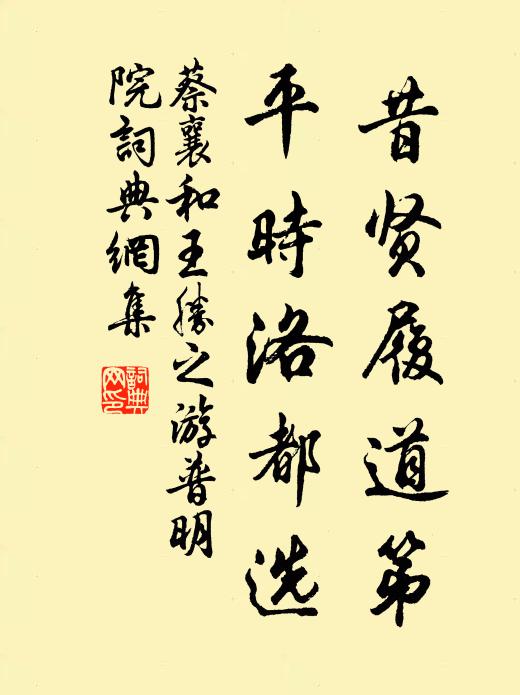 昔贤履道第
平时洛都选
蔡襄和王勝之游普明
院詞典網集
詞典网印